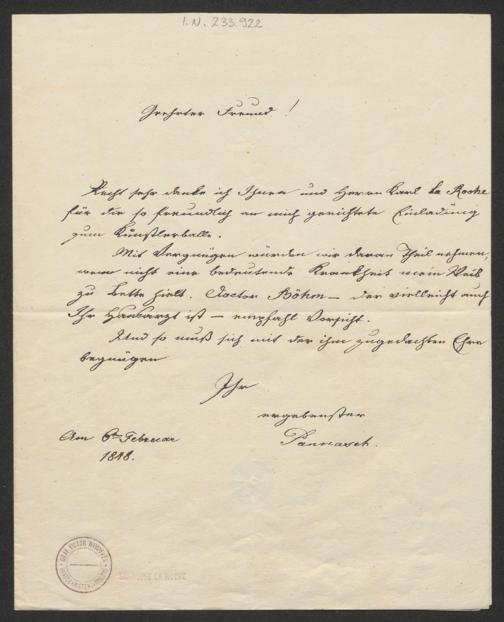 I.N. 233.922
Geehrter Freund!
Recht sehr danke ich Ihnen und Herrn Carl la Roche
für die so freundlich an mich gerichtete Einladung
zum Künstlerballe.
Mit Vergnügen würden wir daran Theil nehmen,
wenn nicht eine bedeutende Krankheit mein Weib
zu Bette hielt. Doctor Böhm – der vielleicht auch
Ihr Hausarzt ist – empfahl Vorsicht.
Und so muß sich mit der ihm zugedachten Ehre
begnügen
Ihr
ergebenster
Pannasch.
Am 6ten Februar
1848.
GRAF VICTOR WIMPFFEN
SAMMLUNG LA ROCHE